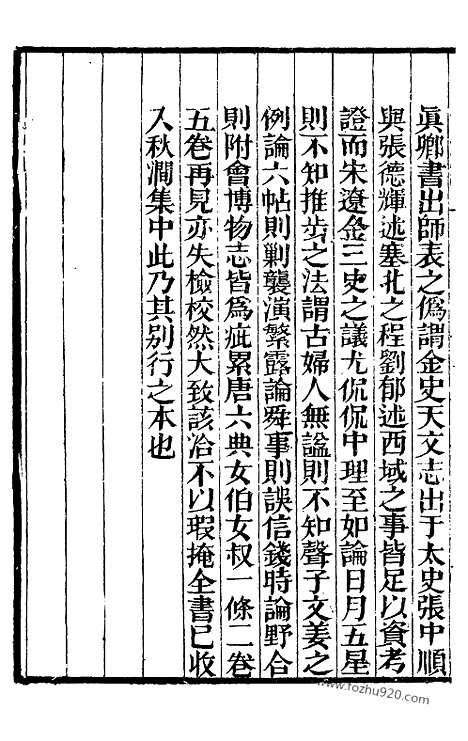 眞卿書出師表之僞謂金史天文志出于太史張中順
與張德輝述塞北之程劉郁述西域之事皆足以資考
證而宋遼金三史之議尤侃侃中理至如論日月五星
則不知推步之法謂古婦人無諡則不知聲子文姜之
例論六帖則剿襲演繁露論舜事則誤信錢時論野合
則附會博物志皆爲疵累唐六典女伯女叔一條二卷
五卷再見亦失檢校然大致該洽不以瑕掩全書已收
入秋澗集中此乃其別行之本也
www.fozhu920.com